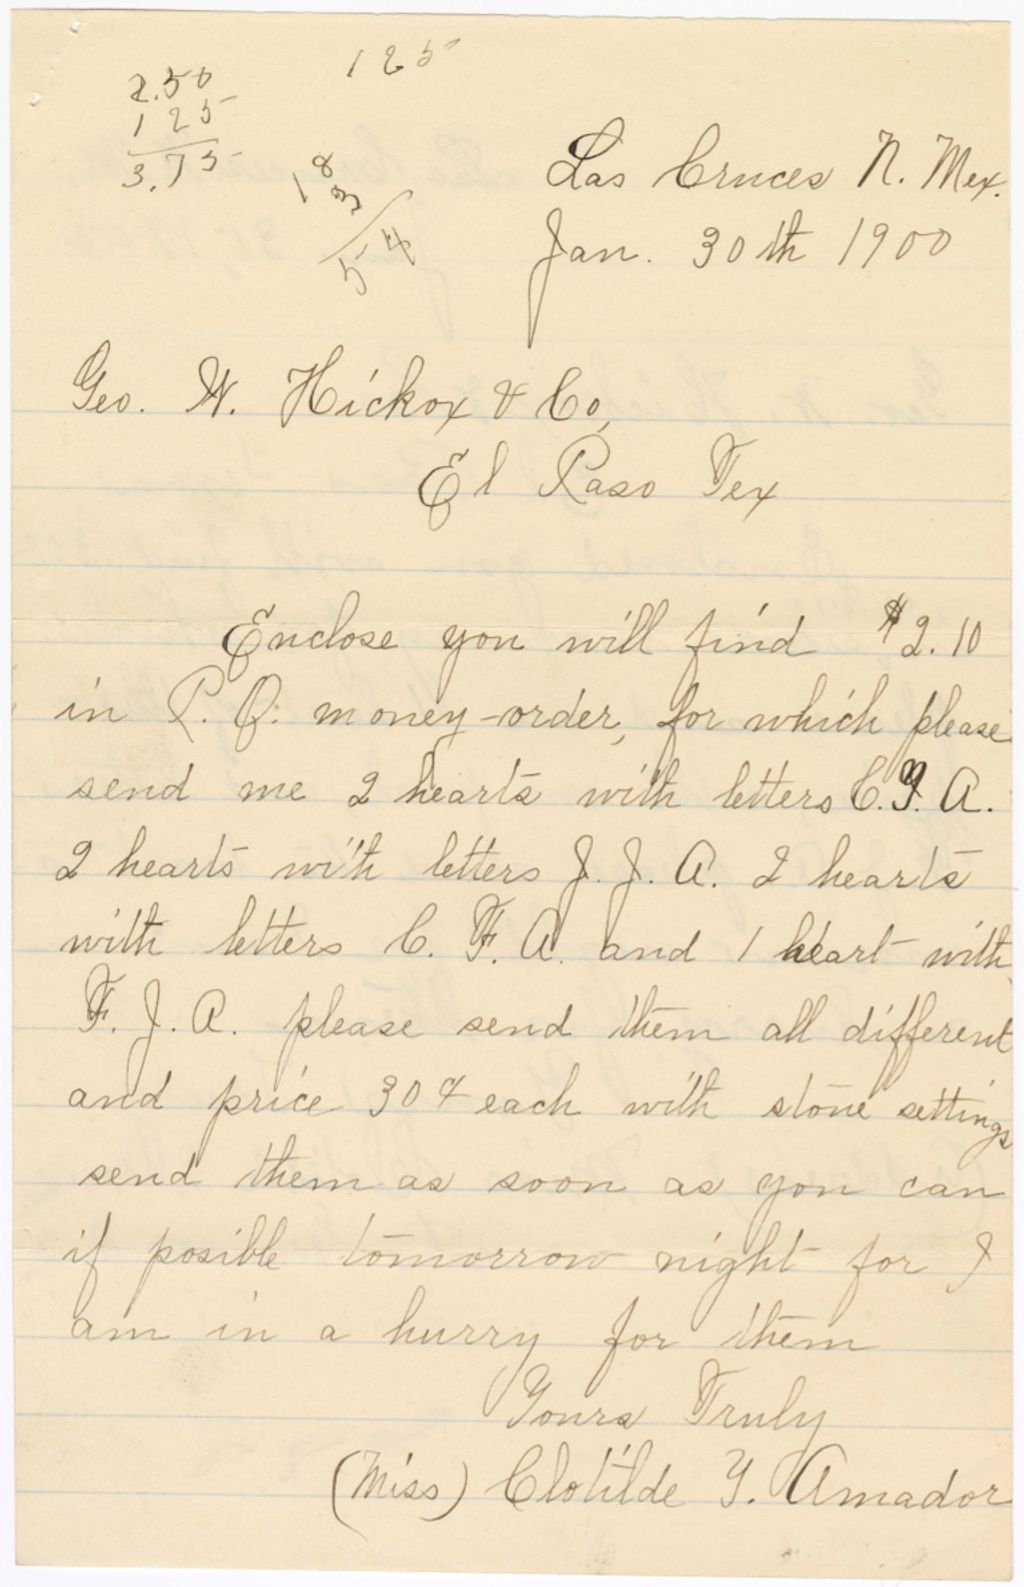 125
2.50
125
3.75
18
3
54
Las Cruces N. Mex.
Jan. 30th 1900
Geo. W. Hickox & Co,
El Paso Tex
Enclose you will find $2.10
in P. O. money-order, for which please
send me 2 hearts with letters C. Y. A.
2 hearts with letters J. J. A. 2 hearts
with letters C. F. A. and 1 heart with
F. J. A. please send them all different
and price 30¢ each with stone settings
send them as soon as you can
if posible tomorrow night for I
am in a hurry for them
Yours Truly
(Miss) Clotilde Y. Amador